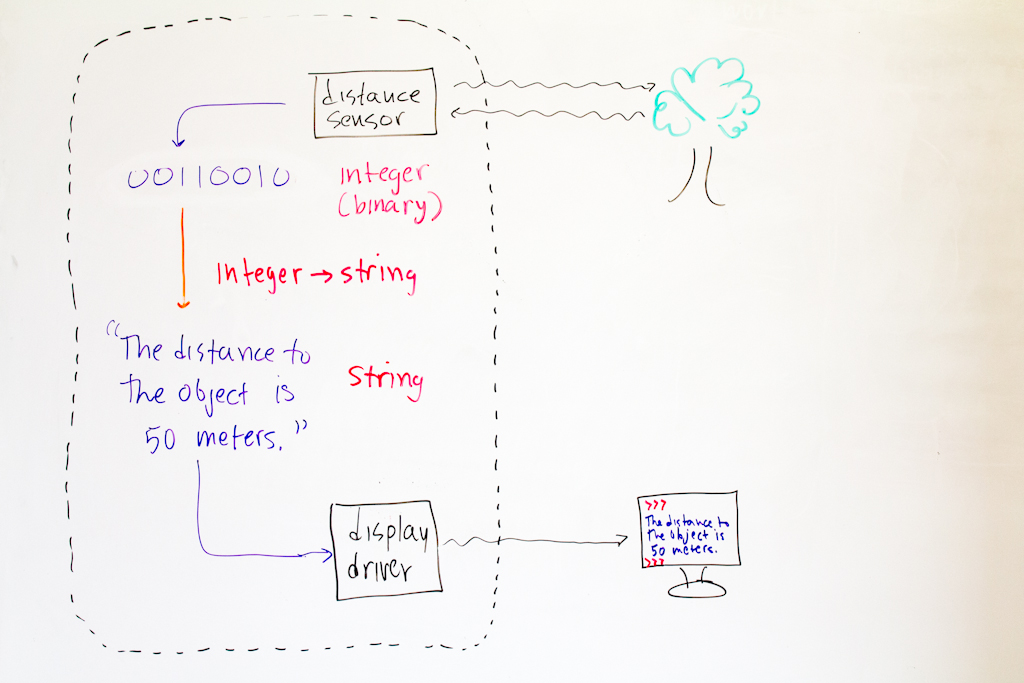 distance
sensor
00110010
integer
(binary)
Integer → string
“The distance to
the object is
50 meters.”
String
display
driver
>>>
The distance to
the object is
50 meters.
>>>